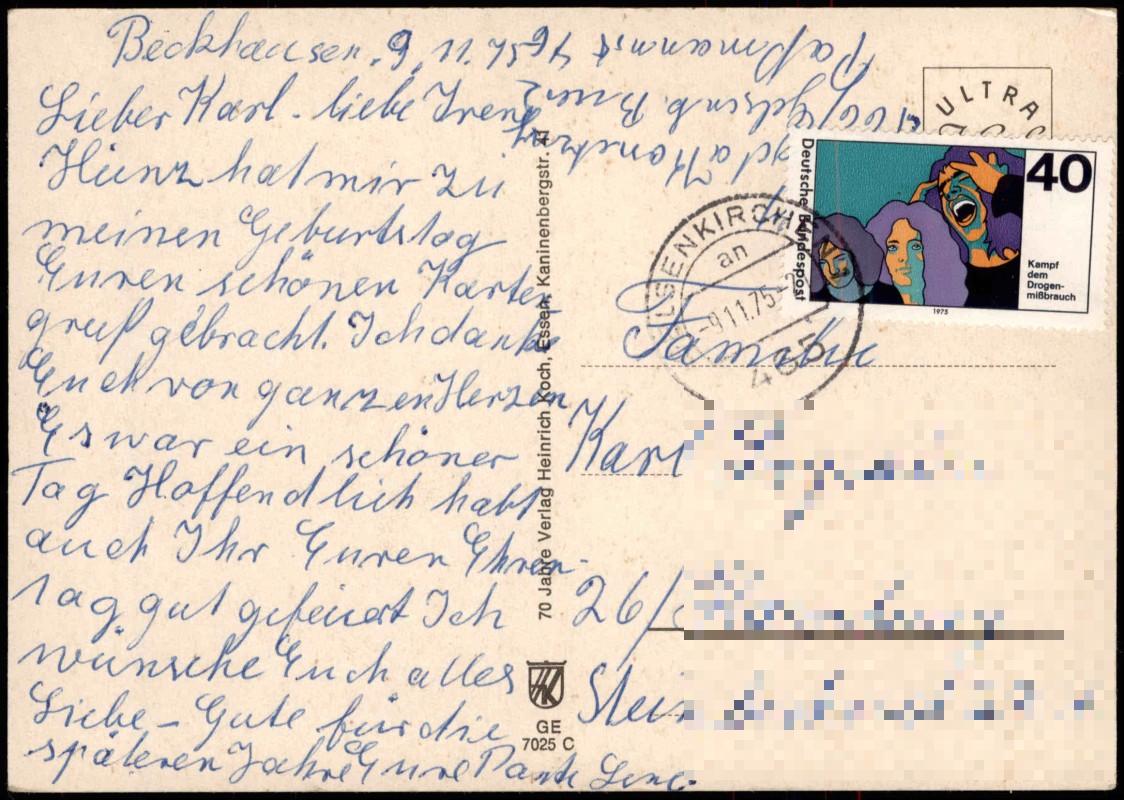 Beckhausen, 9.11.75
Lieber Karl - liebe Irene
Heinz hat mir zu
meinen Geburtstag
Euren schönen Karten
gruß gebracht. Ich danke
Euch von ganzen Herzen
Es war ein schöner
Tag Hoffendlich habt
auch Ihr Euren Ehren-
tag gut gefeiert Ich
wünsche Euch alles
Liebe - Gute für die
späteren Jahre Eure Tante Lene
Gelsenk. Buer
70 Jahre Verlag Heinrich Koch, Essen, Kaninenbergstr.
GE
7025 C
ULTRA
Deutsche Bundespost
40
Kampf
dem
Drogen-
mißbrauch
1975
GELSENKIRCHEN
an
-9.11.75
465
Familie
Karl
26/
Stei